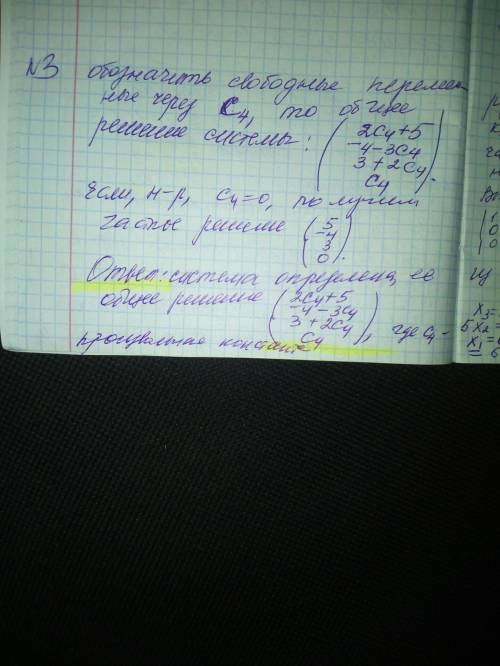 №3 обозначить свободные перемен
ные через C₄, то общее
решение системы: (2C₄+5
-4-3C₄
3+2C₄
C₄).
Если, н-р, C₄=0, получим
частное решение (5
-4
3
0).
Ответ: система определена, ее
общее решение (2C₄+5
-4-3C₄
3+2C₄
C₄), где C₄ -
произвольные константы
X₃=
5X₂
X₁=